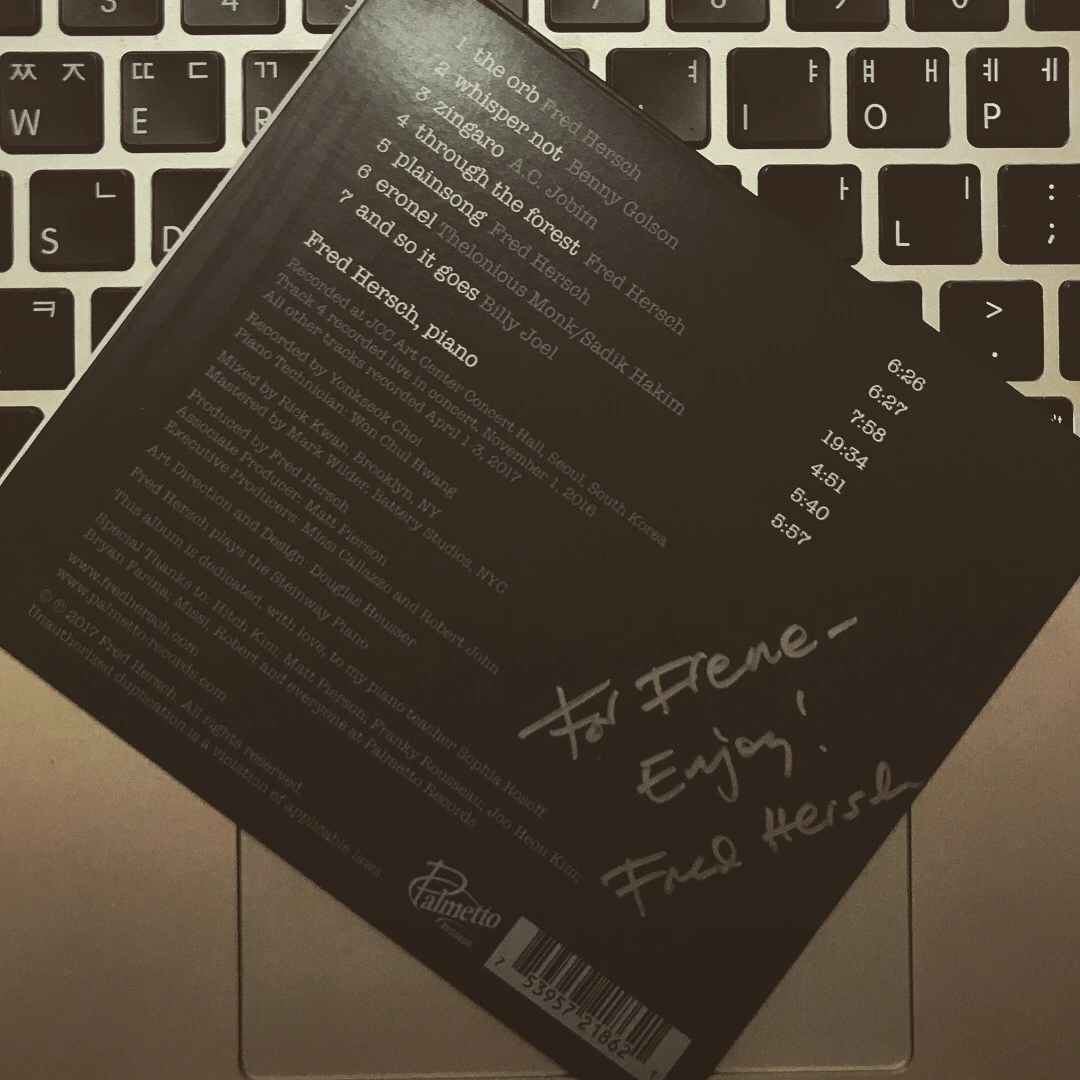 1 the orb Fred Hersch 6:26
2 whisper not Benny Golson 6:27
3 zingaro A.C. Jobim 7:58
4 through the forest Fred Hersch 19:34
5 plainsong Fred Hersch 4:51
6 eronel Thelonious Monk/Sadik Hakim 5:40
7 and so it goes Billy Joel 5:57
Fred Hersch, piano
Recorded at JCC Art Center Concert Hall, Seoul, South Korea
Track 4 recorded live in concert, November 1, 2016
All other tracks recorded April 1-3, 2017
Recorded by Yonkseok Choi
Piano Technician: Won Chul Hwang
Mixed by Rick Kwan, Brooklyn, NY
Mastered by Mark Wilder, Battery Studios, NYC
Produced by Fred Hersch
Associate Producer: Matt Pierson
Executive Producers: Missi Callazzo and Robert John
Art Direction and Design: Douglas Heusser
Fred Hersch plays the Steinway Piano
This album is dedicated, with love, to my piano teacher Sophia Rosoff
Special Thanks to: Hitch Kim; Matt Pierson; Franky Rousseau; Joo Heon Kim;
Bryan Farina; Missi, Robert and everyone at Palmetto Records
www.fredhersch.com
www.palmetto-records.com
© ℗ 2017 Fred Hersch. All rights reserved.
Unauthorized duplication is a violation of applicable laws
For Irene -
Enjoy!
Fred Hersch
Palmetto
RECORDS
7 53957 21862 1
3 4 5 7 8 9 0
ㅉ ㅈ ㄸ ㄷ ㄲ ㅕ ㅑ ㅒ ㅐ ㅖ ㅔ
W E R I O P
ㄴ ㅏ ㅣ :
S D L ;
ㅋ >
.